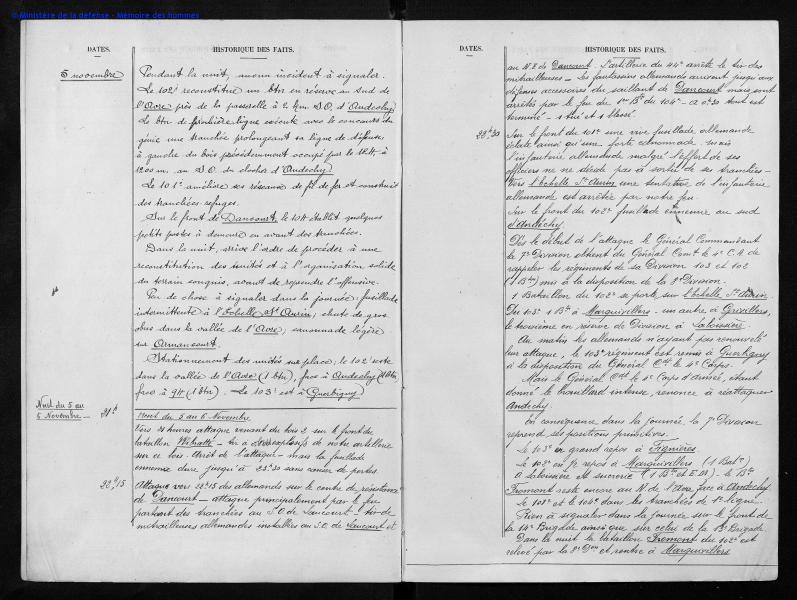 © Ministère de la défense - Mémoire des hommes
DATES. HISTORIQUE DES FAITS.
5 novembre
Pendant la nuit, aucun incident à signaler.
Le 102e reconstitue un btn en réserve au sud de
l'Avre près de la passerelle à 2 km. S.O. d'Andechy
Le btn de première ligne exécute avec le concours du
génie une tranchée prolongeant sa ligne de défense,
à gauche du bois précédemment occupé par le 124, à
1200 m. au S.O. du clocher d'Andechy
Le 101e améliore ses réseaux de fil de fer et construit
des tranchées-refuges.
Sur le front de Dancourt, le 104 établit quelques
petits postes à demeure en avant des tranchées.
Dans la nuit, arrive l'ordre de procéder à une
reconstitution des unités et à l'organisation solide
du terrain conquis, avant de reprendre l'offensive.
Peu de chose à signaler dans la journée: fusillade
intermittente à l'Echelle St Aurin; chute de gros
obus dans la vallée de l'Avre; canonnade légère
sur Armancourt.
Stationnement des unités sur place; le 102 reste
dans la vallée de l'Avre (1 btn), face à Andechy (1 btn)
face à (1 btn). Le 103 est à Guerbigny
Nuit du 5 au
6 Novembre
21h
Nuit du 5 au 6 Novembre
Vers 21 heures attaque venant du bois 2 sur le front du
bataillon - tir à explosifs de notre artillerie
sur ce bois. Arrêt de l'attaque - mais la fusillade
ennemie dure jusqu'à 22h30 sans causer de pertes
22h15
Attaque vers 22h15 des allemands sur le centre de résistance
de Dancourt - attaque principalement par le feu
partant des tranchées au S.O de Laucourt - tir de
mitrailleuses allemandes installées au S.O. de Laucourt et
DATES. HISTORIQUE DES FAITS.
au N.E de Dancourt. L'artillerie du 44e arrête le tir des
mitrailleuses - Les fantassins allemands arrivent jusqu'aux
défenses accessoires du saillant de Dancourt mais sont
arrêtés par le feu du 1er Bn du 104e - à 0h30 tout est
terminé - 1 tué et 1 blessé.
22h30
Sur le front du 101e une vive fusillade allemande
éclate ainsi qu'une forte canonnade mais
l'infanterie allemande malgré l'effort de ses
officiers ne se décide pas à sortir de ses tranchées -
Vers l'Echelle St Aurin une tentative de l'infanterie
allemande est arrêtée par notre feu.
Sur le front du 102e fusillade ennemie au sud
d'Andechy.
Dès le début de l'attaque le Général Commandant
la 7e Division obtient du Général Comt le 4e C.A de
rappeler les régiments de sa Division 103 et 102
(1 Bn) mis à la disposition de la 8e Division.
1 Bataillon du 102e se porte sur l'Echelle St Aurin.
Du 103e 1 Bn à Marquivillers - un autre à Grivillers,
le troisième en réserve de Division à
Au matin les allemands n'ayant pas renouvelé
leur attaque, le 103e régiment est remis à Guerbigny
à la disposition du Général Cdt le 4e Corps.
Mais le Général Cdt le 4e Corps d'armée, étant
donné le brouillard intense, renonce à réattaquer
Andechy.
En conséquence dans la journée la 7e Division
reprend ses positions primitives.
Le 103e en grand repos à Fignières
Le 102e en 1/2 repos à Marquivillers (1 Bat.)
à et sucrerie (1 Bn et E.M). Le Bn
Fremont reste encore au N. de l'Avre face à Andechy
Le 101e et le 104e dans les tranchées de 1e ligne.
Rien à signaler dans la journée sur le front de
la 14e Brigade ainsi que sur celui de la 13e Brigade
Dans la nuit le bataillon Fremont du 102e est
relevé par la 8e Don et rentre à Marquivillers